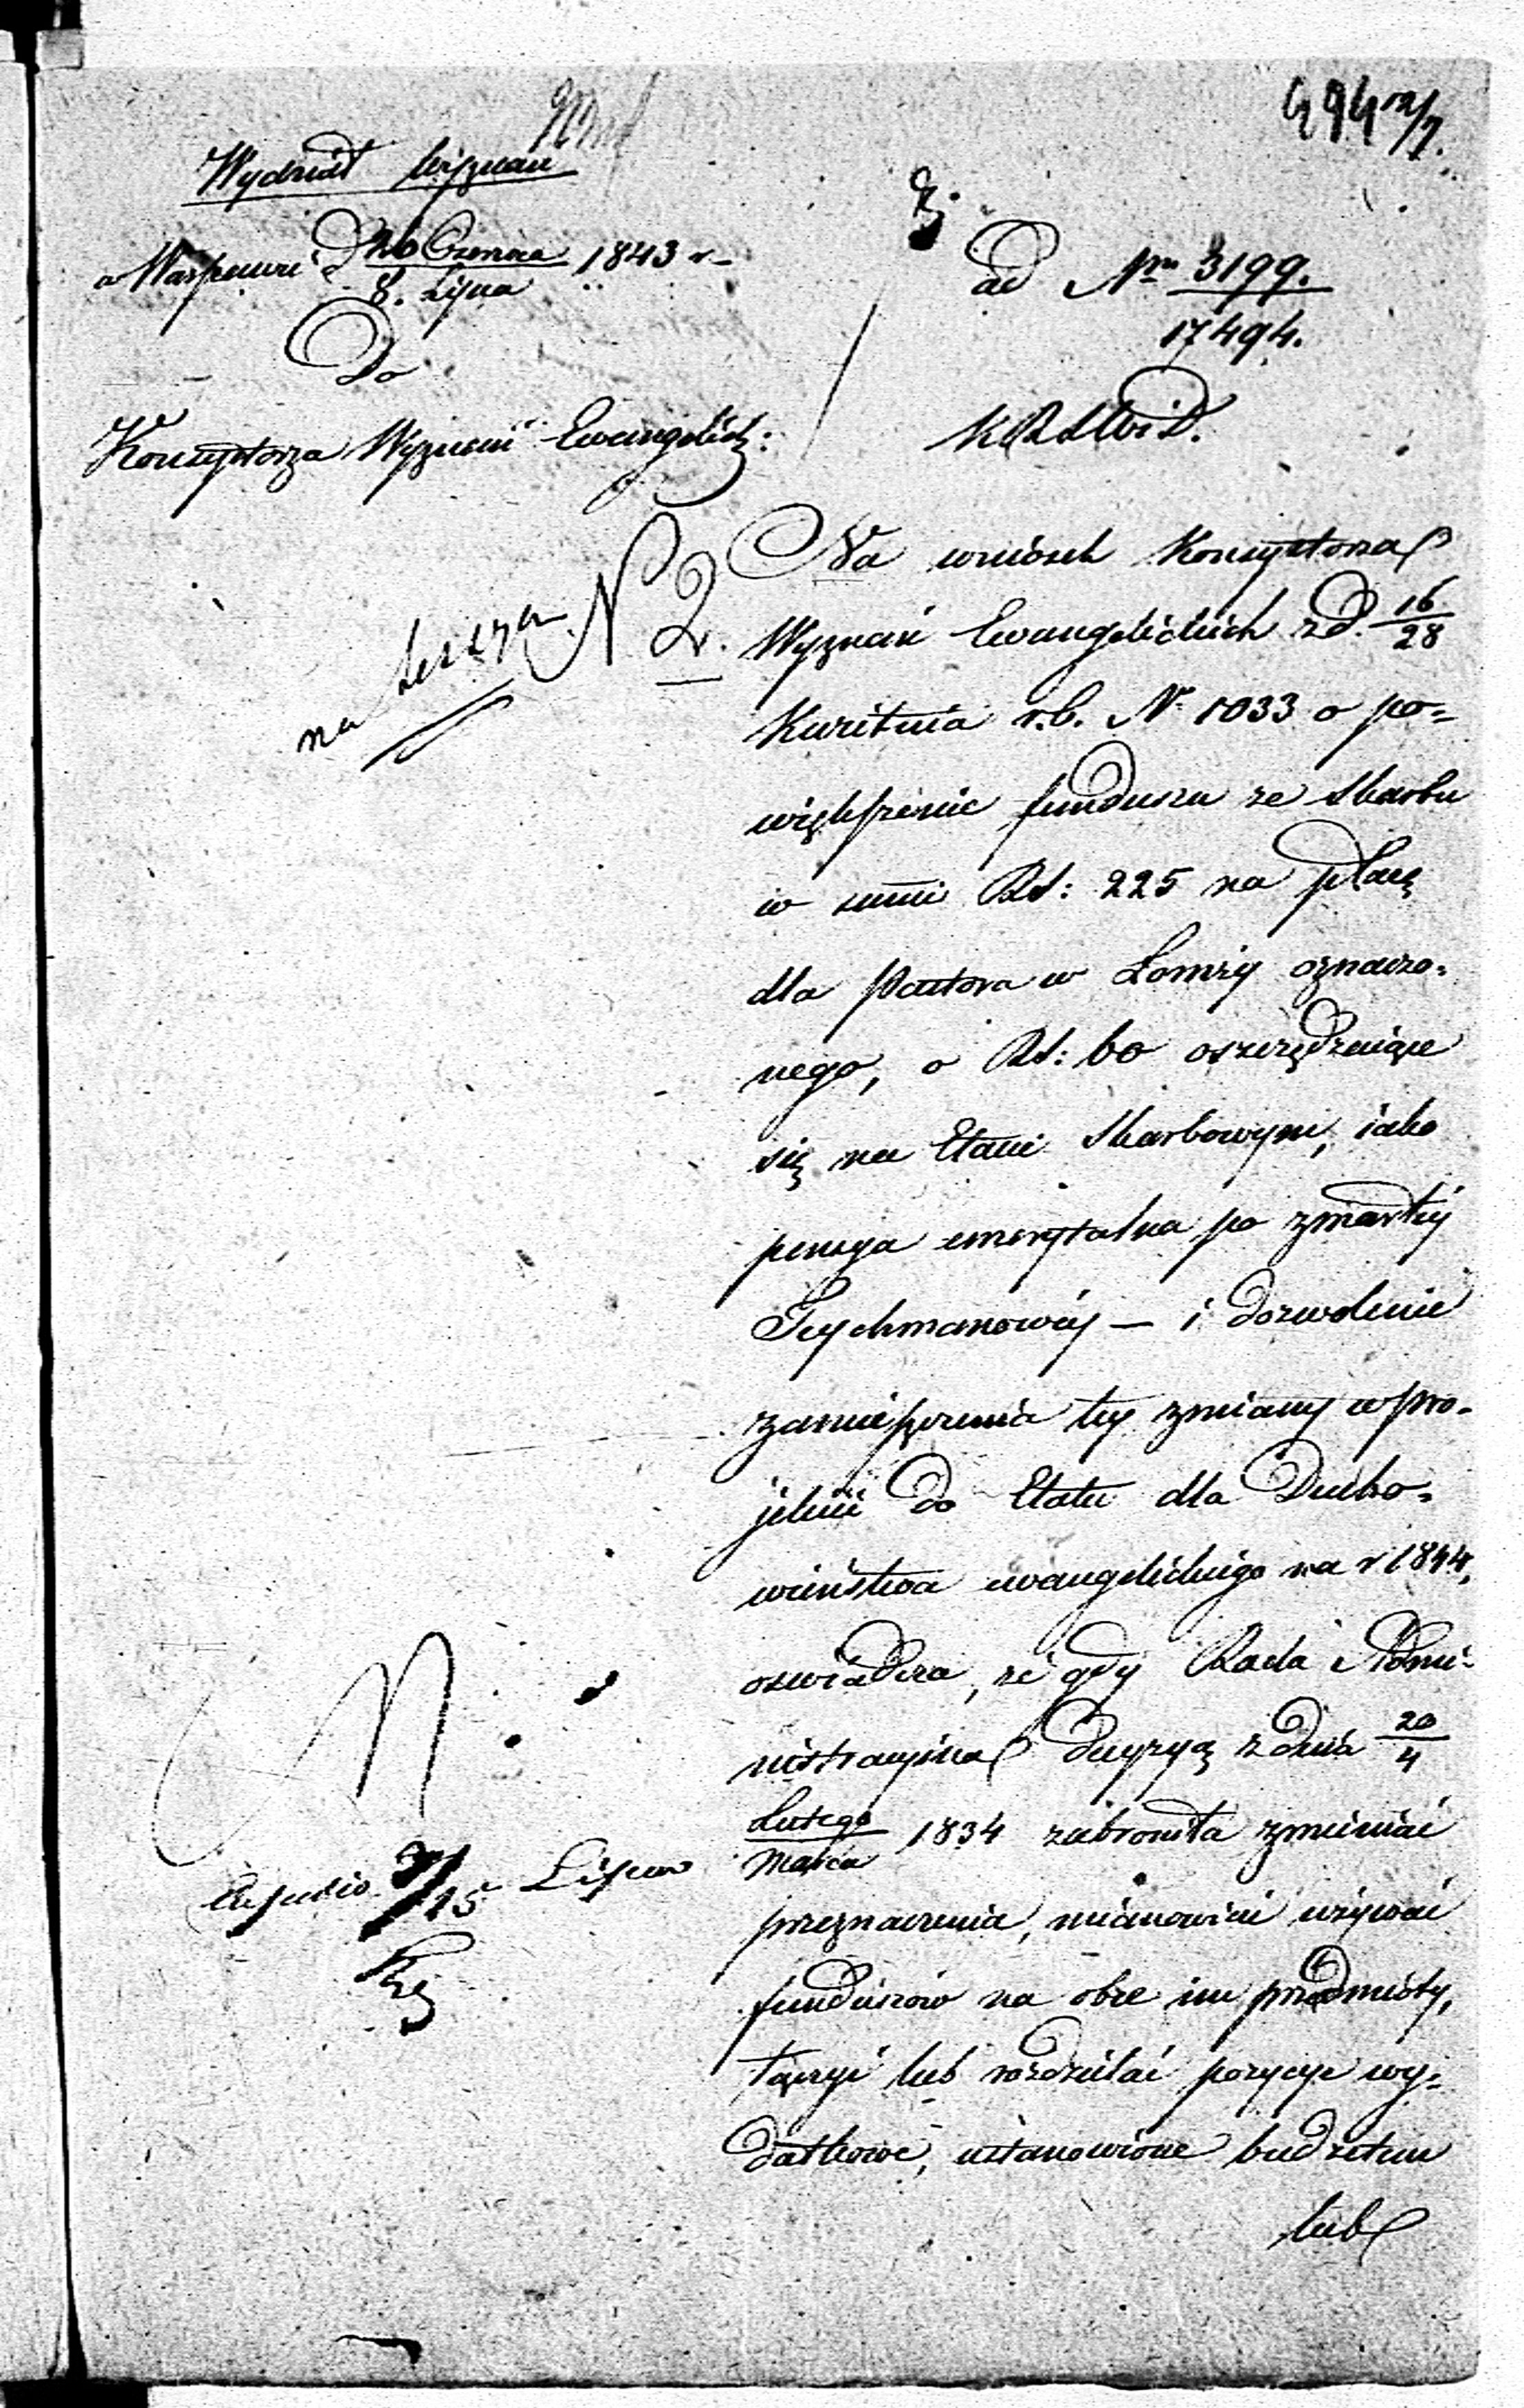 494 12/7.
Wydział Wyznań
w Warszawie d 26 Czerwca 1843 r
8. Lipca
Do
Konsystorza Wyznań Ewangelick:
ad Nru 3199.
17494.
KRSWiD.
na
N 2.
Na wniosek Konsystorza
Wyznań Ewangelickich z d. 16/28
Kwietnia r.b. Nr 1033 o po=
większenie funduszu ze Skarbu
w summie RS: 225 na płacę
dla Pastora w Łomży oznaczo=
nego, o RS: 60 oszczędzające
się na Etacie Skarbowym, iako
pensya emerytalna po zmarłéj
Teychmanowéj — i dozwolenie
zamieszczenia téj zmiany w pro=
jekcie do Etatu dla Ducho=
wieństwa ewangelickiego na r 1844,
oświadcza, że gdy Rada Admi=
nistracyina decyzyą z dnia 20/4
Lutego
Marca 1834 zabroniła zmieniać
przeznaczenia, mianowicie używać
funduszów na obce im przedmioty,
łączyć lub rozdzielać pozycye wy=
datkowe, ustanowione budżetem
lub
3/15 Lipca